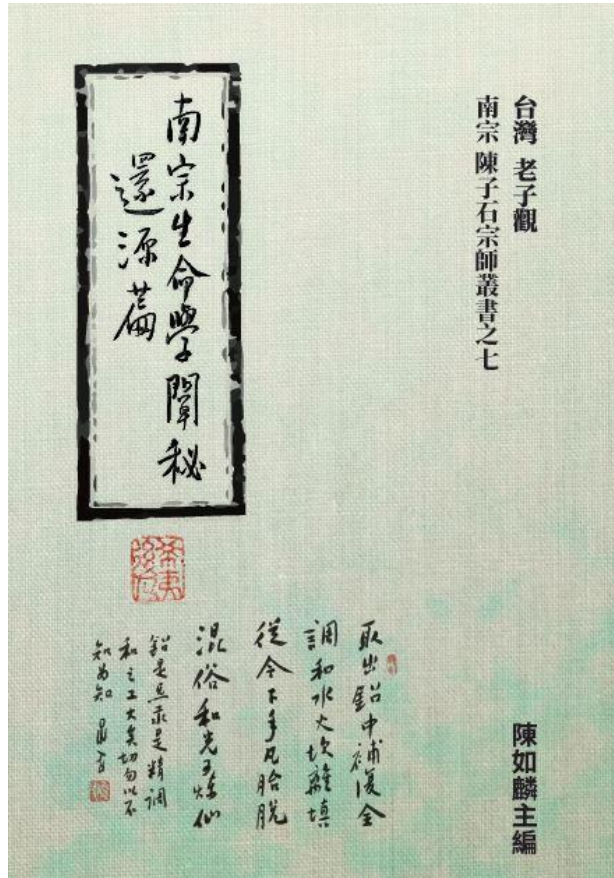 台灣 老子觀
南宗 陳子石宗師叢書之七
南宗生命學闡秘
還源篇
取出鉛中補復全
調和水火坎離填
從今下手凡胎脫
混俗和光可煉仙
鉛是炁汞是精調
和之工大矣切勿以不
知為知
陳如麟主編